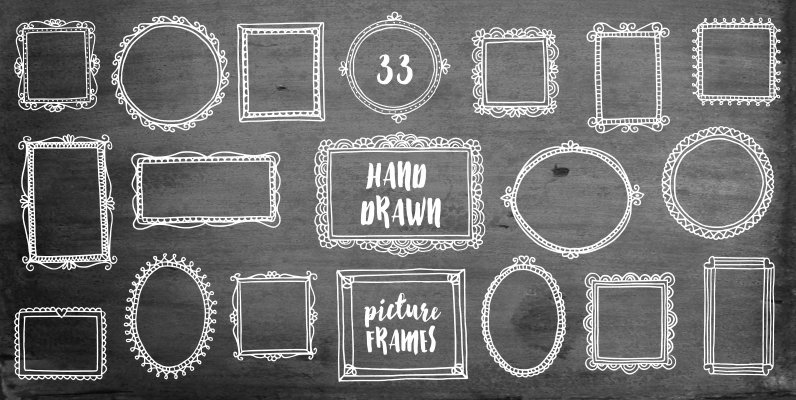 33
HAND
DRAWN
picture
FRAMES